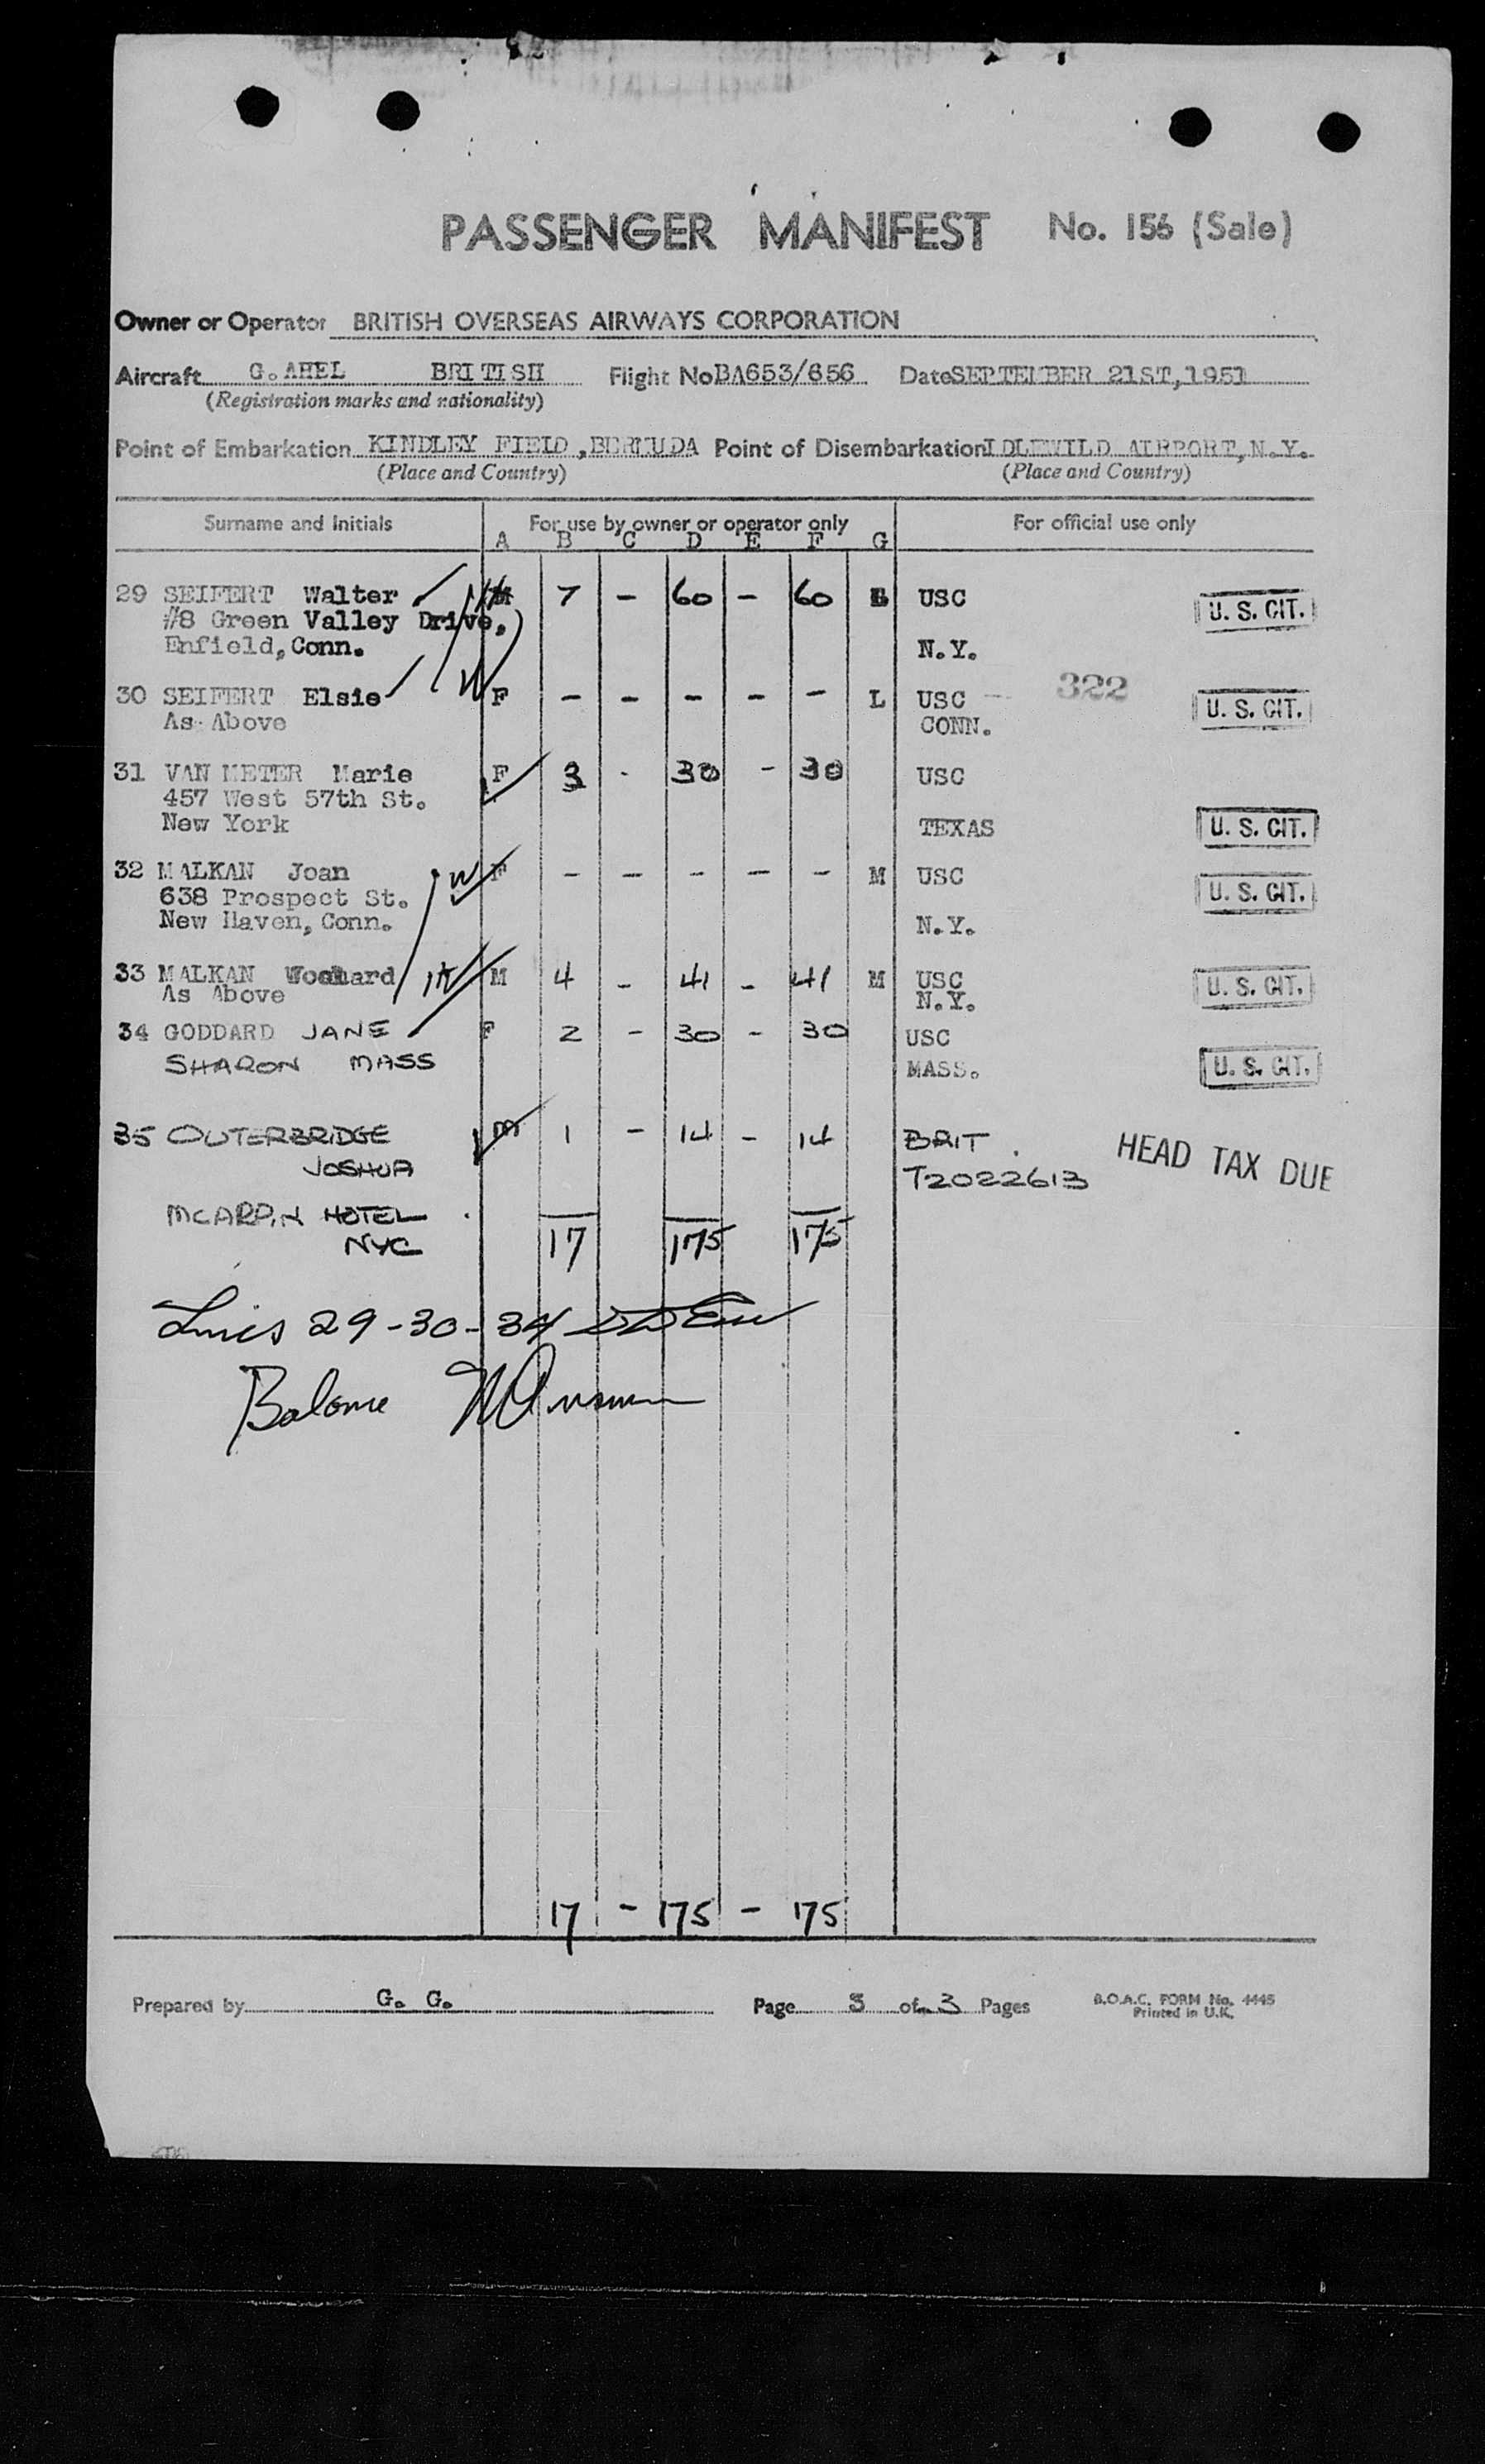 PASSENGER MANIFEST No. 156 (Sale)
Owner or Operator BRITISH OVERSEAS AIRWAYS CORPORATION
Aircraft G.AHEL BRITISH Flight No BA653/656 Date SEPTEMBER 21ST, 1951
(Registration marks and nationality)
Point of Embarkation KINDLEY FIELD, BERMUDA Point of Disembarkation IDLEWILD AIRPORT, N.Y.
(Place and Country) (Place and Country)
Surname and Initials For use by owner or operator only For official use only
A B C D E F G
29 SEIFERT Walter M 7 - 60 - 60 USC U. S. CIT.
#8 Green Valley Drive,
Enfield, Conn. N.Y.
30 SEIFERT Elsie W F - - - - - L USC 322 U. S. CIT.
As Above CONN.
31 VAN METER Marie F 3 - 30 - 30 USC
457 West 57th St.
New York TEXAS U. S. CIT.
32 MALKAN Joan W F - - - - - M USC U. S. CIT.
638 Prospect St.
New Haven, Conn. N.Y.
33 MALKAN H M 4 - 41 - 41 M USC U. S. CIT.
As Above N.Y.
34 GODDARD JANE F 2 - 30 - 30 USC
SHARON MASS MASS. U. S. CIT.
35 OUTERBRIDGE M 1 - 14 - 14 BRIT. HEAD TAX DUE
JOSHUA T2022613
MCALPIN HOTEL
NYC 17 175 175
Lines 29-30-34
Balance
17 - 175 - 175
Prepared by G. G. Page 3 of 3 Pages B.O.A.C. FORM No. 4445
Printed in U.K.